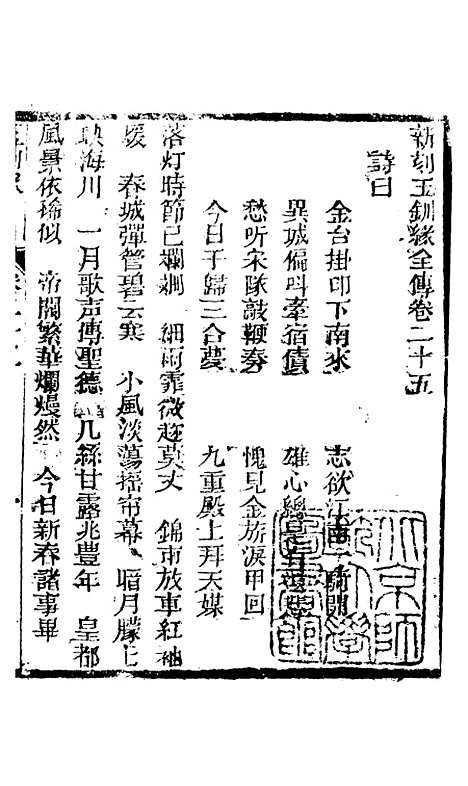 新刻玉釧緣全傳卷二十五
詩曰
金台掛印下南來　志欲江南一騎開
異城偏呌牽宿債　雄心總是
愁听宋隊敲鞭奏　愧見金旂淚甲回
今日于歸三合葠　九重殿上拜天媒
落灯時節已斕斒　細雨霏微趂莫丈　錦市放車紅袖
煖　春城彈管碧云寒　小風淡蕩揺帘幕　暗月朦上
映海川　一月歌声傳聖德　几絲甘露兆豊年　皇都
風景依稀似　帝闕繁華爛熳然　今日新春諸事畢